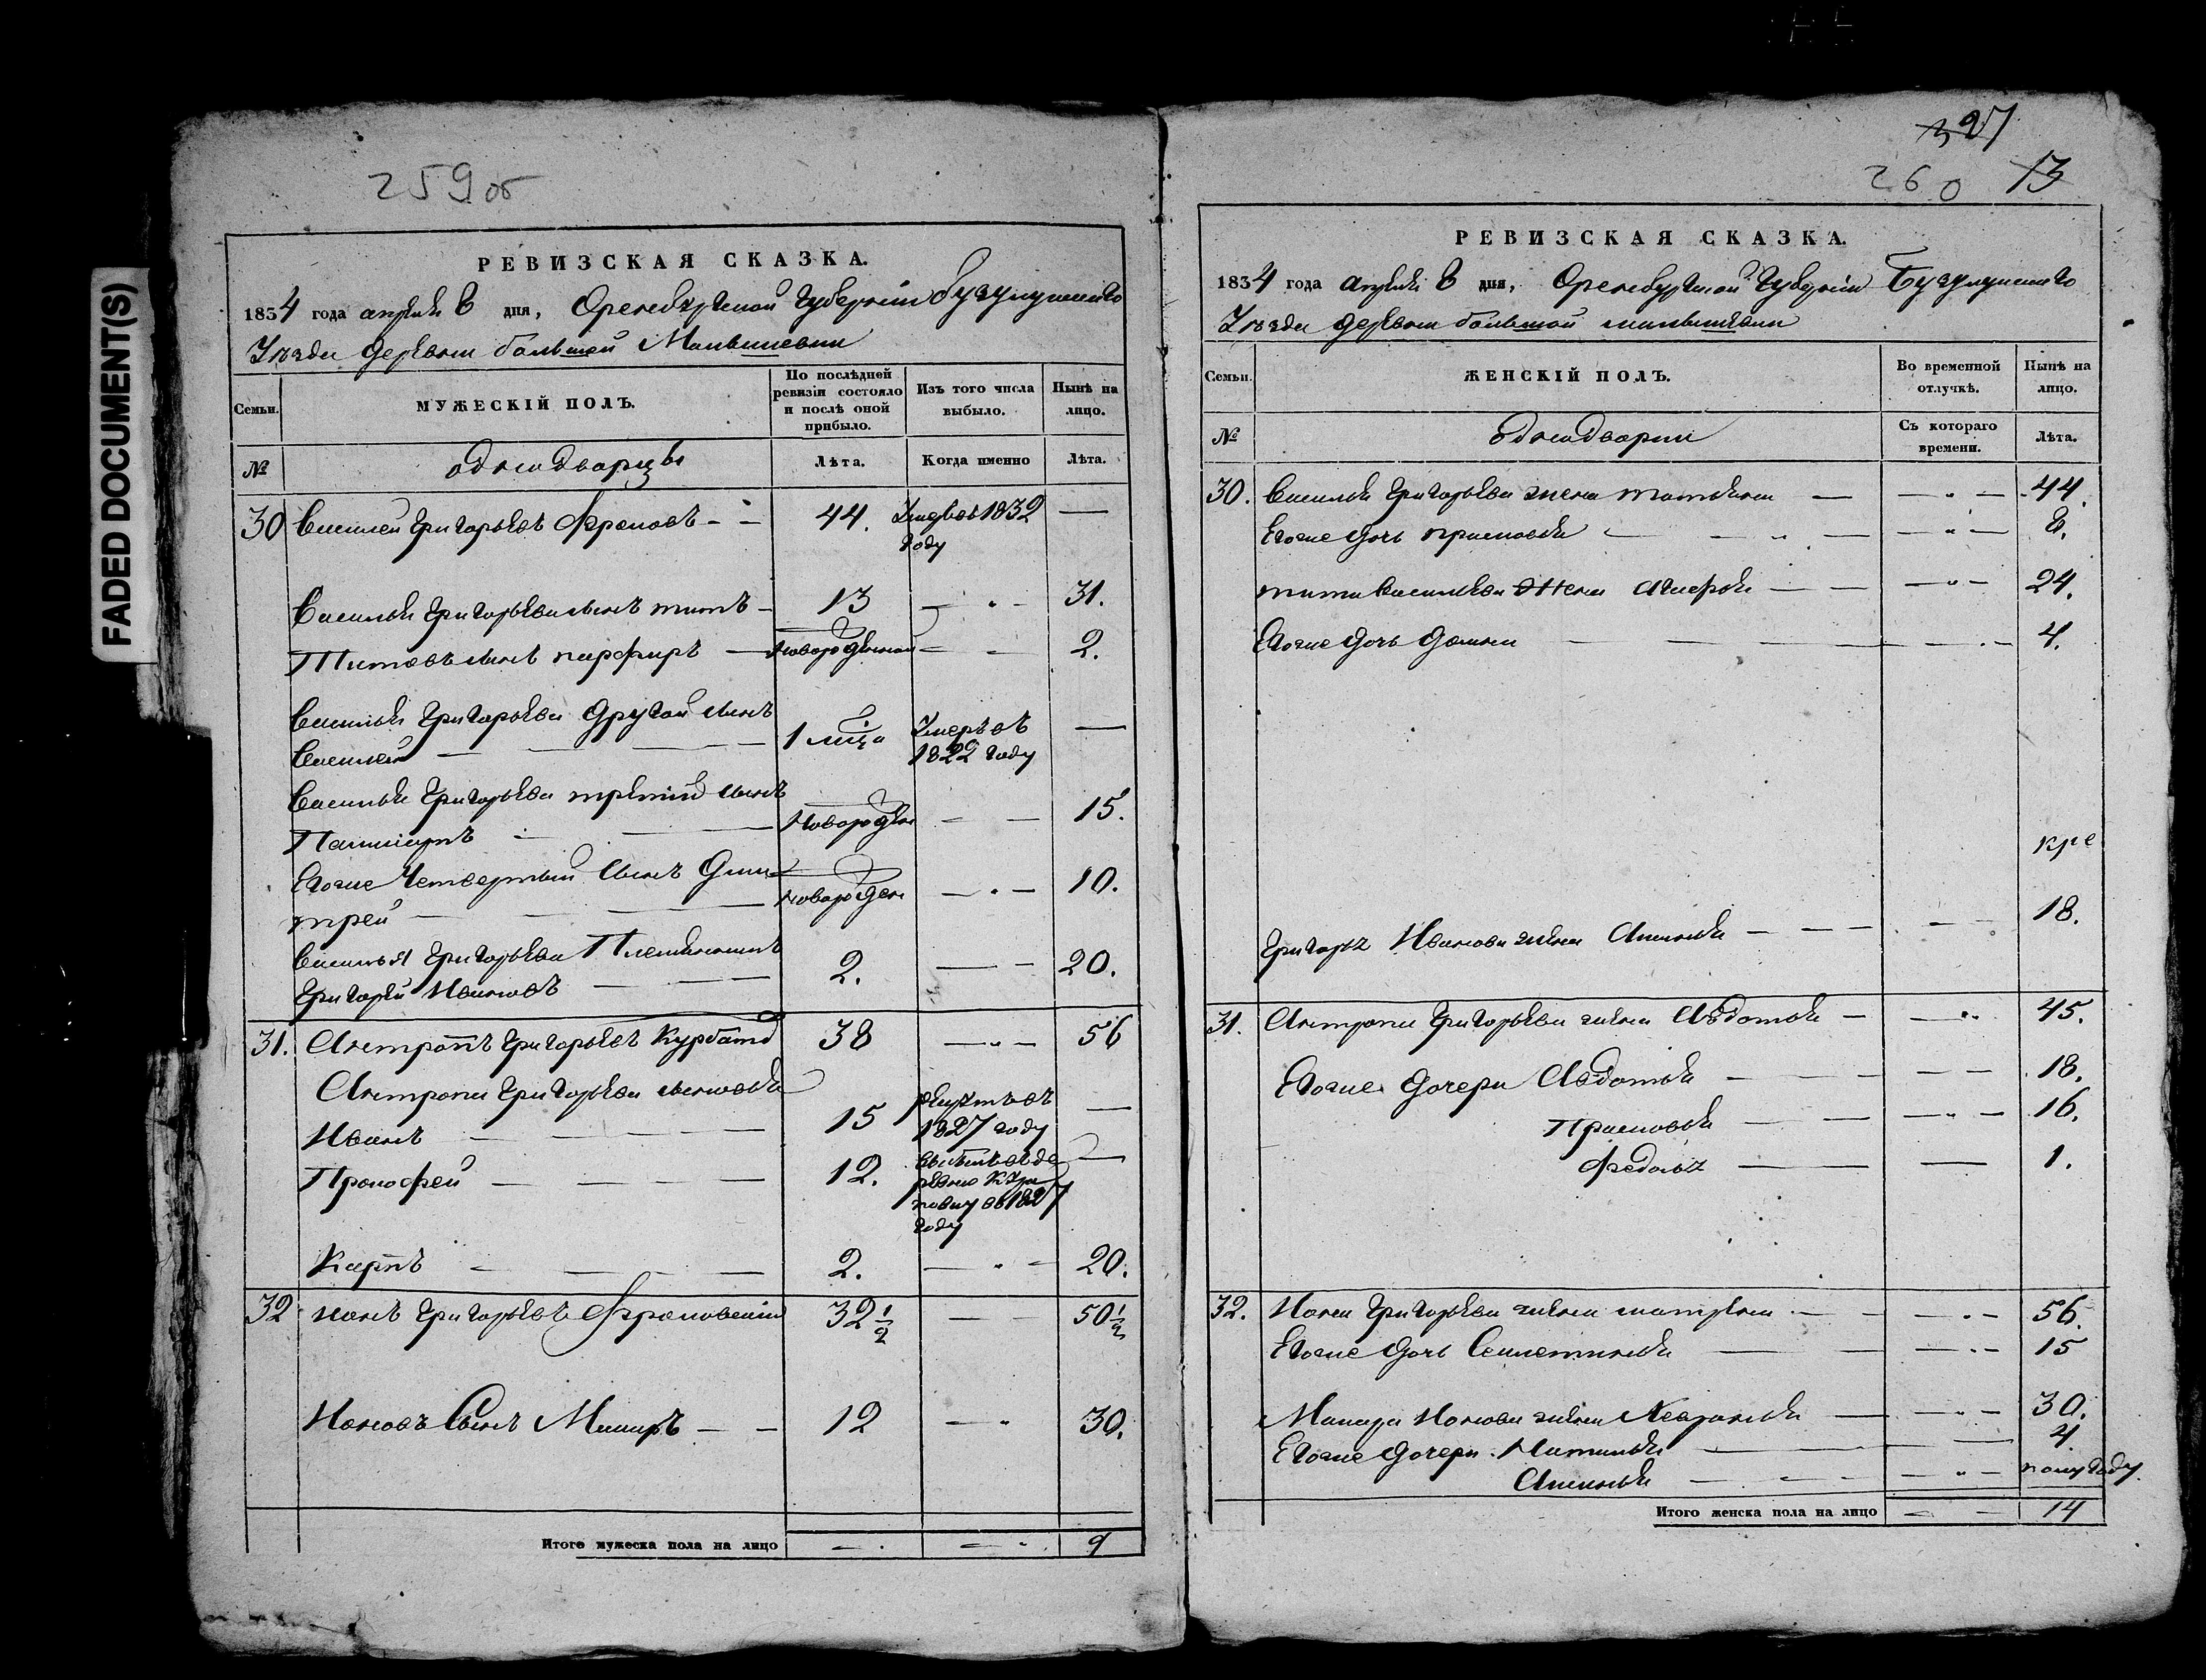 FADED DOCUMENT(S)
259об
РЕВИЗСКАЯ СКАЗКА.
1834 года апреля 6 дня, Оренбургской Губернiи бузулушкаго
Уезда деревни большой Малышевки
Семьи.
МУЖЕСКIЙ ПОЛЪ.
По послѣдней ревизiи состояло и послѣ оной прибыло.
Изъ того числа выбыло.
Нынѣ на лицо.
№
однодворцы
Лѣта.
Когда именно
Лѣта.
30 Василей Григорьевъ Фроловъ - - 44. Умеръвъ 1832 году —
Василья Григорьева сынъ титъ - 13 — „ — 31.
Титовъ сынъ парфиръ — Новорожденной — — 2.
Василья Григорьева другой сынъ
Василей — — — 1 лица Умеръ въ 1822 году —
Василья Григорьева третий сынъ
— — Новорожден — — 15.
Егоже Четвертый сынъ Дми
трей — — — новорожден — „ — 10.
Василья Григорьева Племянникъ
Григорей Ивановъ — — 2. — — 20.
31. Антропъ Григорьевъ Курбато 38 — „ — 56
Антропа Григорьева сыновья
Иванъ — — — — 15 рекрутъ въ 1827 году —
Прокофей — — — — 12. въ 1827 году —
Карпъ — — — — 2. — „ — 20.
32 нонъ Григорьевъ 32 1/2 — — 50 1/2
Ноновъ Сынъ Макаръ — — 12 — „ 30.
Итого мужеска пола на лицо — . — „ 9
327
260 13
РЕВИЗСКАЯ СКАЗКА.
1834 года апреля 6 дня, Оренбургской Губернiи Бузулушкаго
Уезда деревни большой малышевки
Семьи.
ЖЕНСКIЙ ПОЛЪ.
Во временной отлучкѣ.
Нынѣ на лицо.
№
однодворки
Съ котораго времени.
Лѣта.
30. Василья Григорьева жена татьяна — — „ — 44.
Егоже дочь прасковья — — „ — — „ — 8.
тита Васильева жена — — — „ — 24.
Егоже дочь домна — — — — „ — 4.
Григорья Иванова жена Аксинья — — — — — 18.
31. Антропа Григорьева жена Авдотья — — „ 45.
Егоже дочери Авдотья — — — — — 18.
Прасковья — — — — „ — 16.
Федосья — — — 1.
32. Нона Григорьева жена матрена — — — „ — 56.
Егоже дочь — — — „ — 15
Макара Нонова жена — — „ — 30.
Егоже дочери Наталья — — — — 4
Аксинья — — — — „ — полугоду
Итого женска пола на лицо — — 14